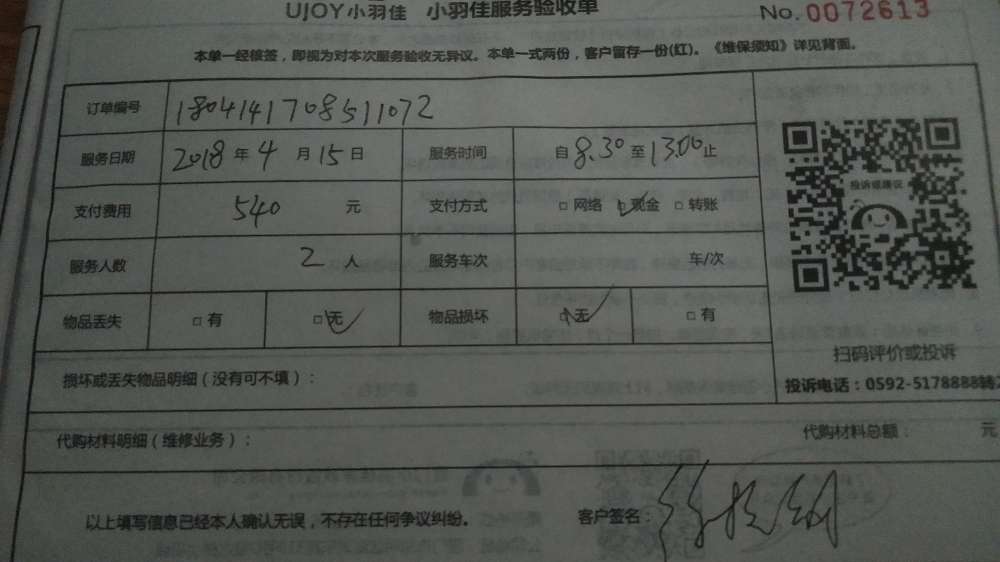 UJOY小羽佳 小羽佳服务验收单
No. 0072613
本单一经核签，即视为对本次服务验收无异议。本单一式两份，客户留存一份(红)。《维保须知》详见背面。
订单编号 1804141708511072
服务日期 2018 年 4 月 15 日 服务时间 自 8.30 至 13.00 止
支付费用 540 元 支付方式 □ 网络 □ 现金 □ 转账
投诉或建议
服务人数 2 人 服务车次 车/次
物品丢失 □ 有 □ 无 物品损坏 □ 无 □ 有
扫码评价或投诉
损坏或丢失物品明细（没有可不填）：
投诉电话：0592-5178888转2
代购材料明细（维修业务）： 代购材料总额： 元
以上填写信息已经本人确认无误，不存在任何争议纠纷。 客户签名：